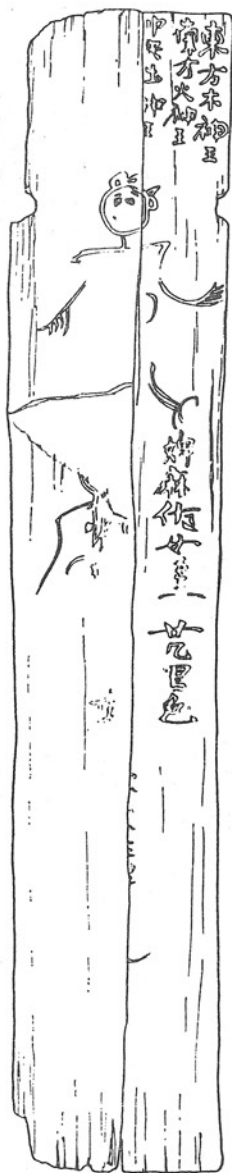 東方木神王
南方火神王
中央土神王
婢麻佐女生年廿九黒色